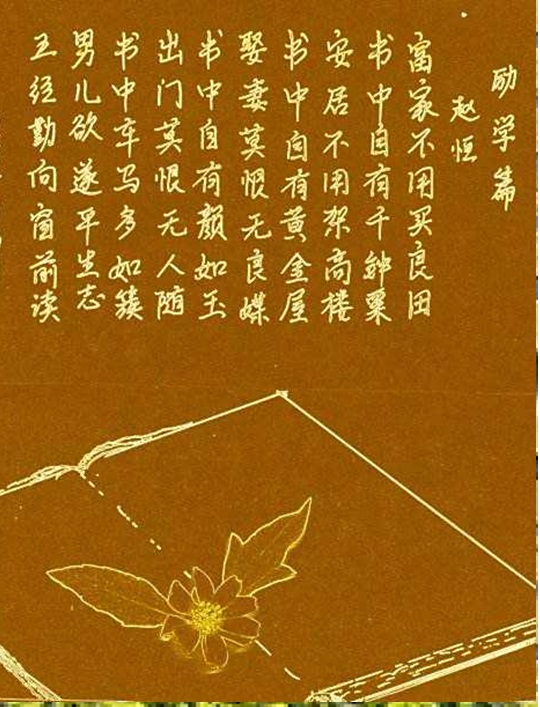 励学篇
赵恒
富家不用买良田
书中自有千钟粟
安居不用架高楼
书中自有黄金屋
娶妻莫恨无良媒
书中自有颜如玉
出门莫恨无人随
书中车马多如簇
男儿欲遂平生志
五经勤向窗前读